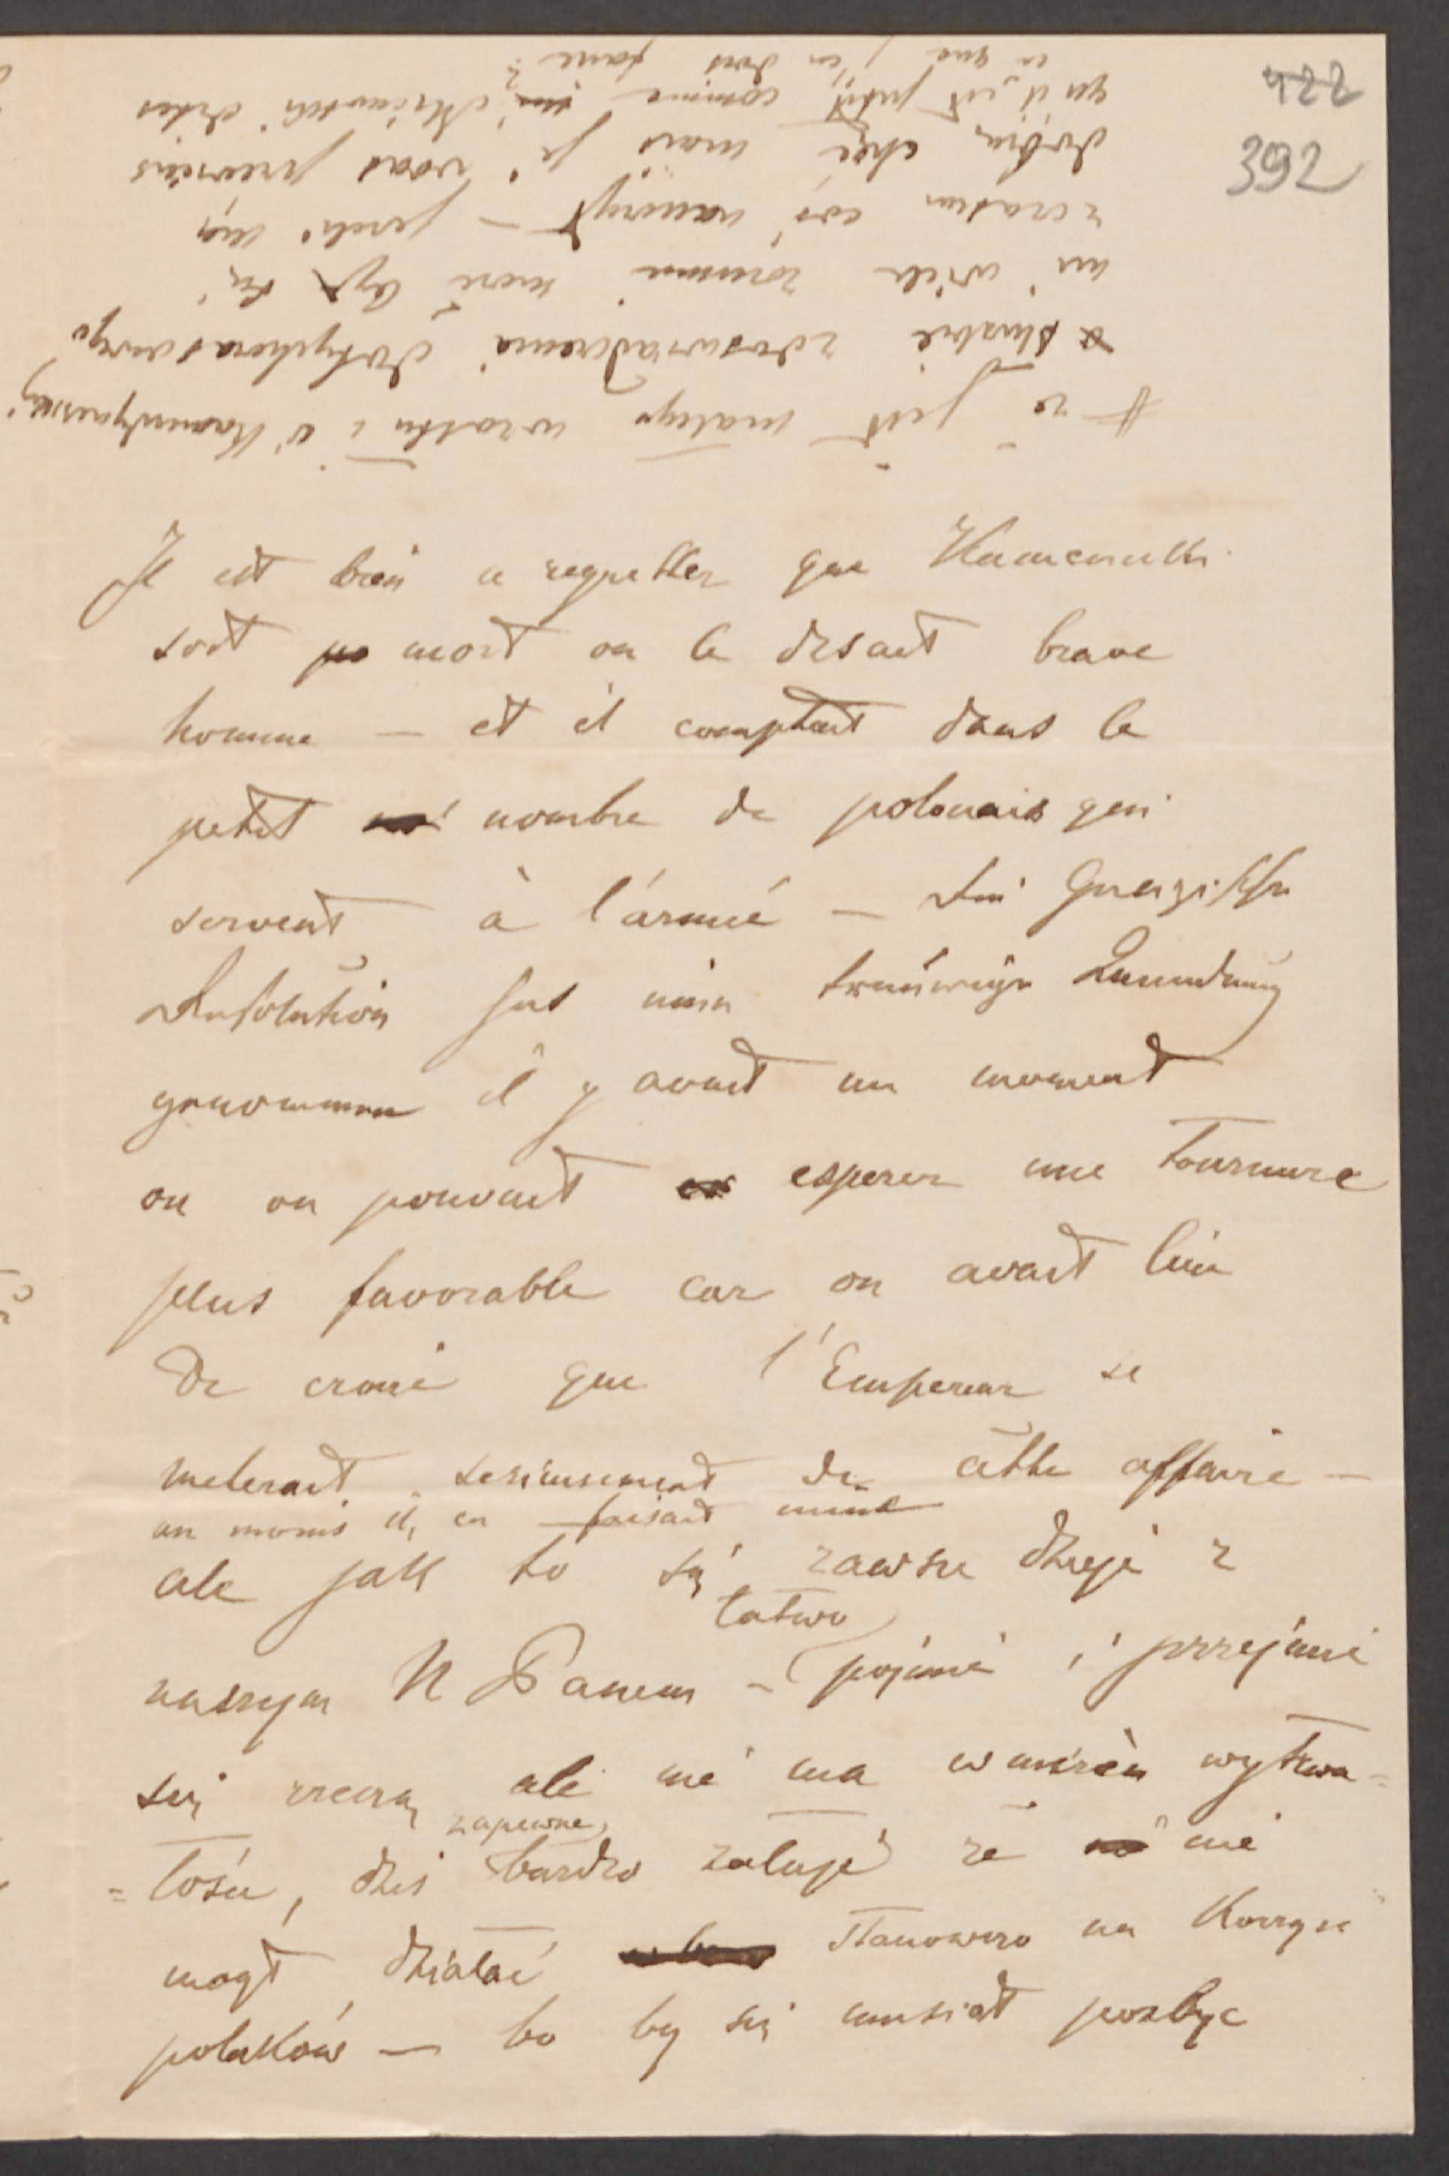 422
392
# że jest małego wzrostu i o
służbie zdoswiadczenia dotychczasowego
nie wiele rozumie może być się
z czasem coś nauczył – jeżeli ma
dobrą chęć mais je vous previens
qu'il est petit comme dites
ce que j'en dois faire?
Il est bien a regretter que Kamenecki
soit mort on le disait brave
homme – et il comptait dans le
petit nombre de polonais qui
servent à l'ármée – die Gnezische
Resolution hat eine traurige Wendung
genommen il y avait un moment
ou on pouvait esperer une tournure
plus favorable car on avait lieu
De croire que l'Empereur se
melerait serieusement de cette affaire –
au moins il en faisait mine
ale jak to się zawsze dzieje z
naszym N Panem – łatwo pojmie i przejmie
się rzeczą ale nie ma w mierze wytrwa=
=łości, dziś zapewne bardzo żałuje że nie
mógł działać stanowczo na Korzysc
polaków – bo by się musiał pozbyc